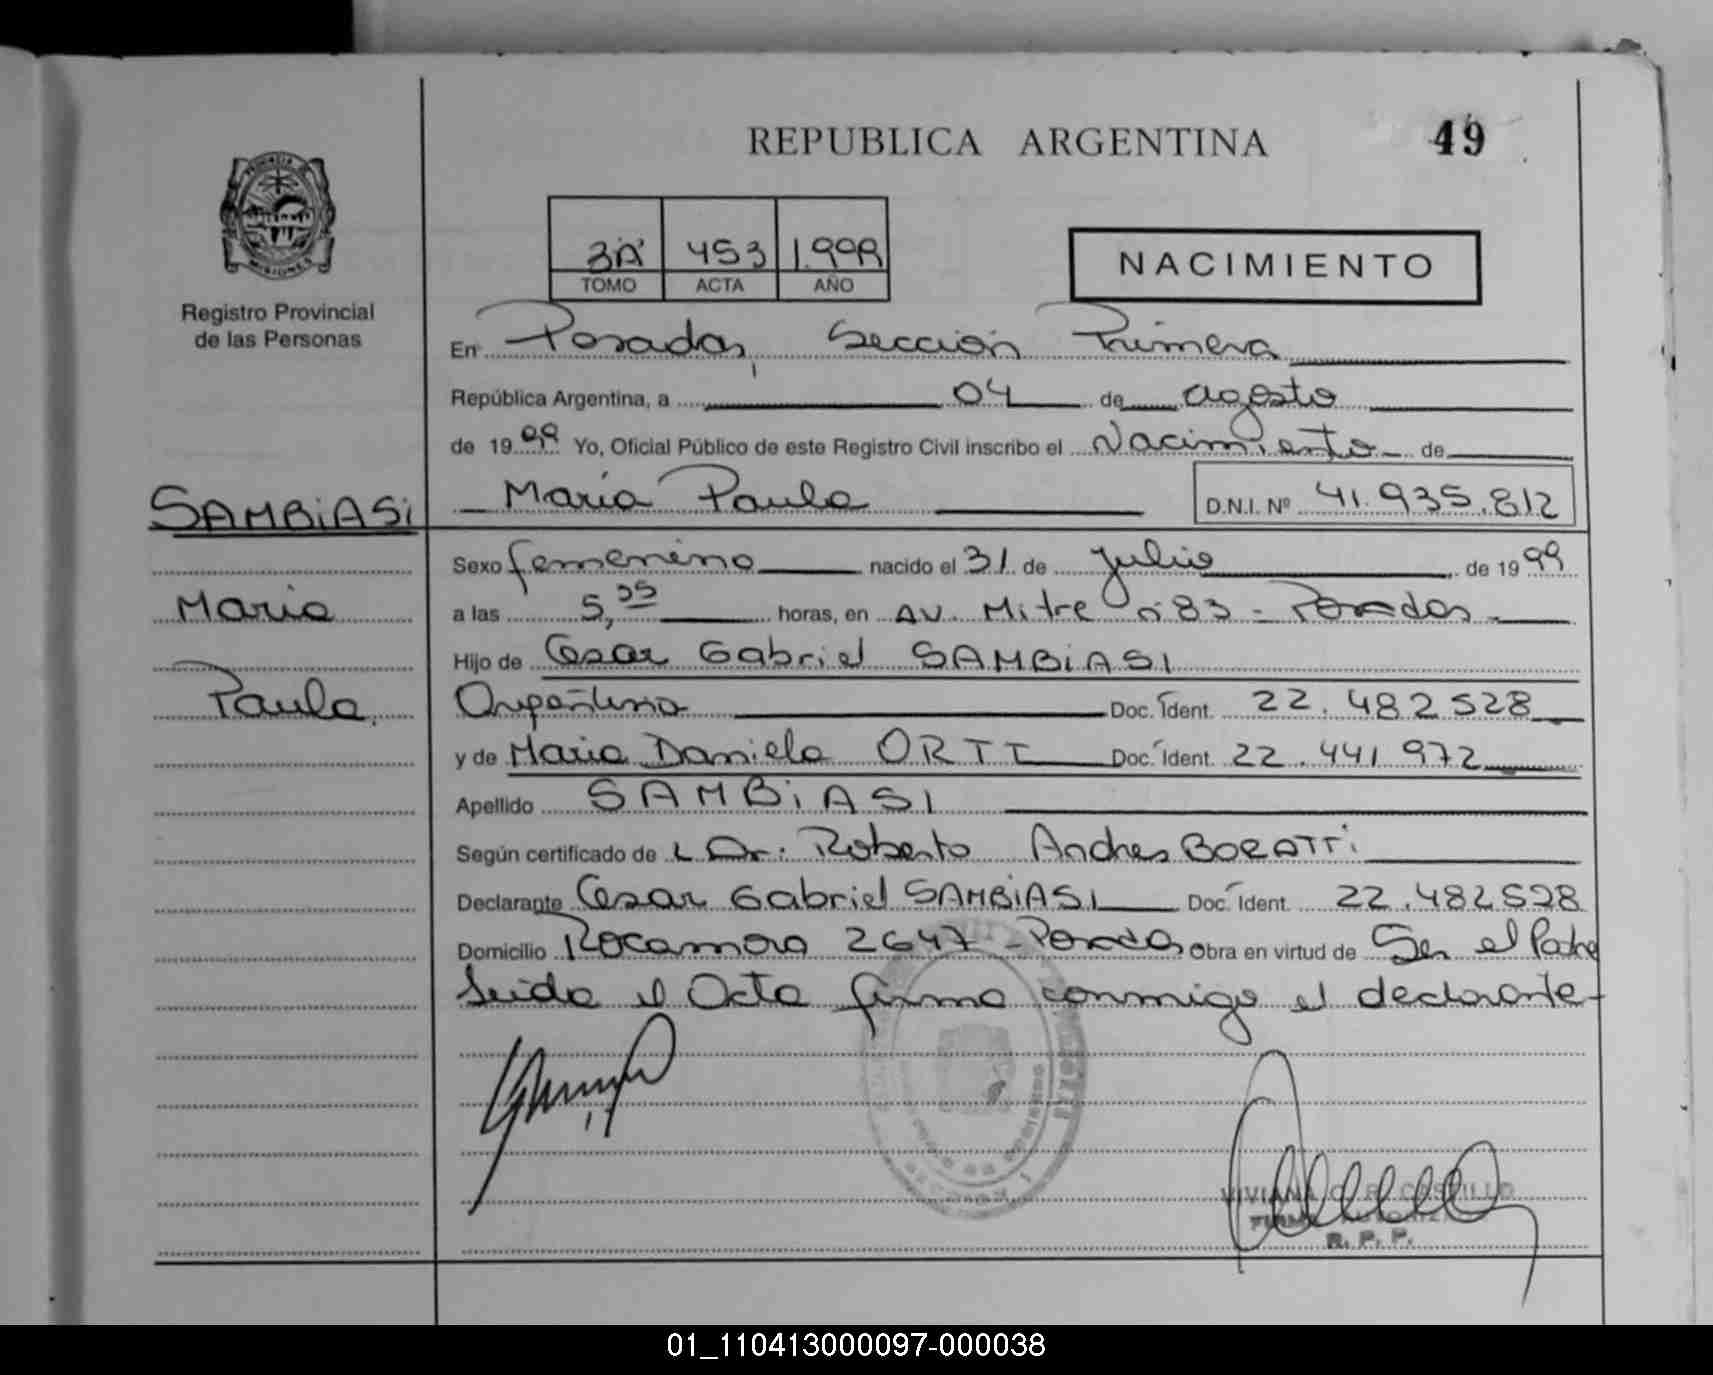 REPUBLICA ARGENTINA
49
PROVINCIA DE
MISIONES
Registro Provincial
de las Personas
3"A" 453 1.999
TOMO ACTA AÑO
NACIMIENTO
En Posadas, Sección Primera
República Argentina, a 04 de agosto
de 1999 Yo, Oficial Público de este Registro Civil inscribo el Nacimiento de
María Paula D.N.I. Nº 41.935.812
SAMBiASi
María
Paula.
Sexo femenino nacido el 31 de julio de 1999
a las 5,35 horas, en AV. Mitre nº 83 - Posadas
Hijo de Cesar Gabriel SAMBiASI
Argentina Doc. Ident. 22.482528
y de María Daniela ORTT Doc. Ident. 22.441972
Apellido SAMBiASI
Según certificado de L Dr. Roberto Andres BORATTi
Declarante Cesar Gabriel SAMBiASI Doc. Ident. 22.482528
Domicilio Rocamora 2647 - Posadas Obra en virtud de Ser el Padre
Leida el Acta firma conmigo el declarante
VIVIANA C. R. CASTILLO
FIRMA AUTORIZADA
R. P. P.
01_110413000097-000038